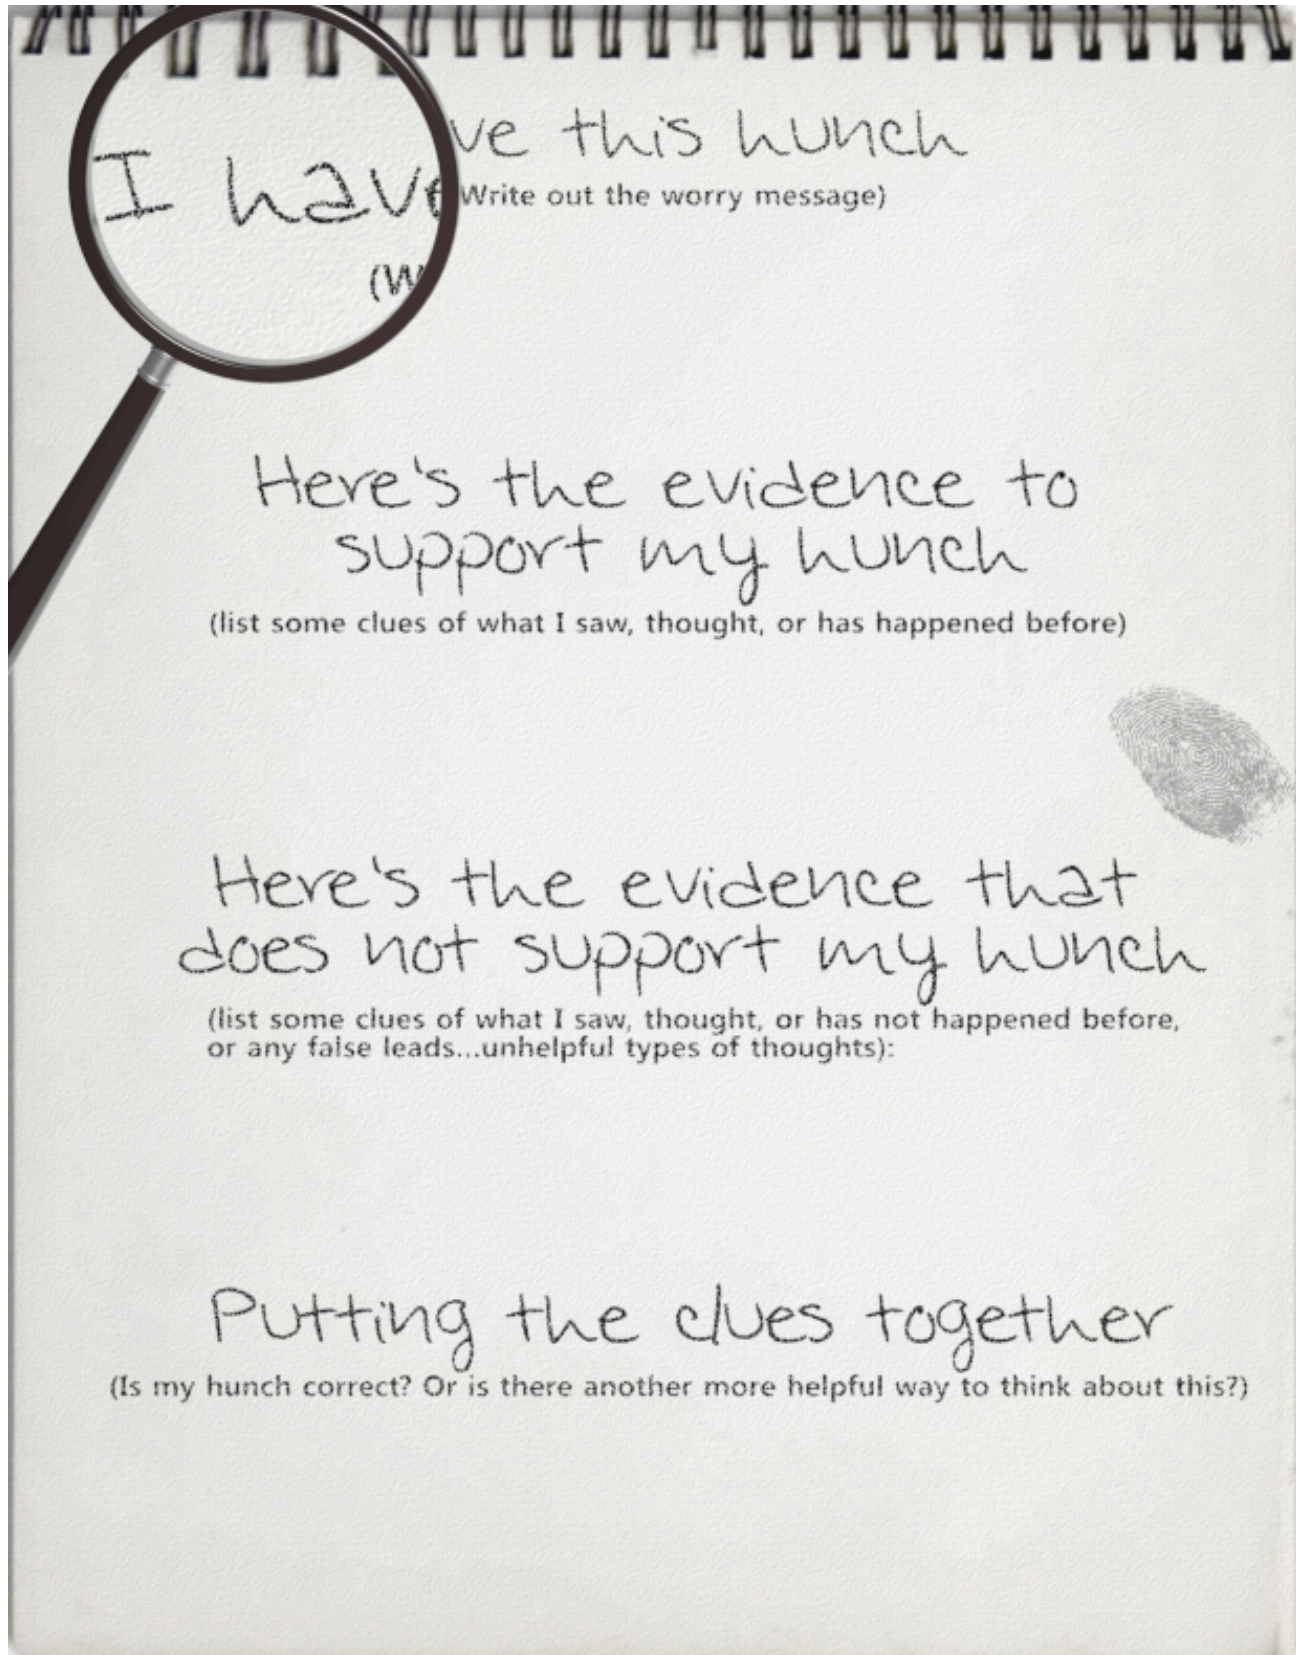 I have this hunch
(Write out the worry message)
Here's the evidence to
support my hunch
(list some clues of what I saw, thought, or has happened before)
Here's the evidence that
does not support my hunch
(list some clues of what I saw, thought, or has not happened before,
or any false leads...unhelpful types of thoughts):
Putting the clues together
(Is my hunch correct? Or is there another more helpful way to think about this?)